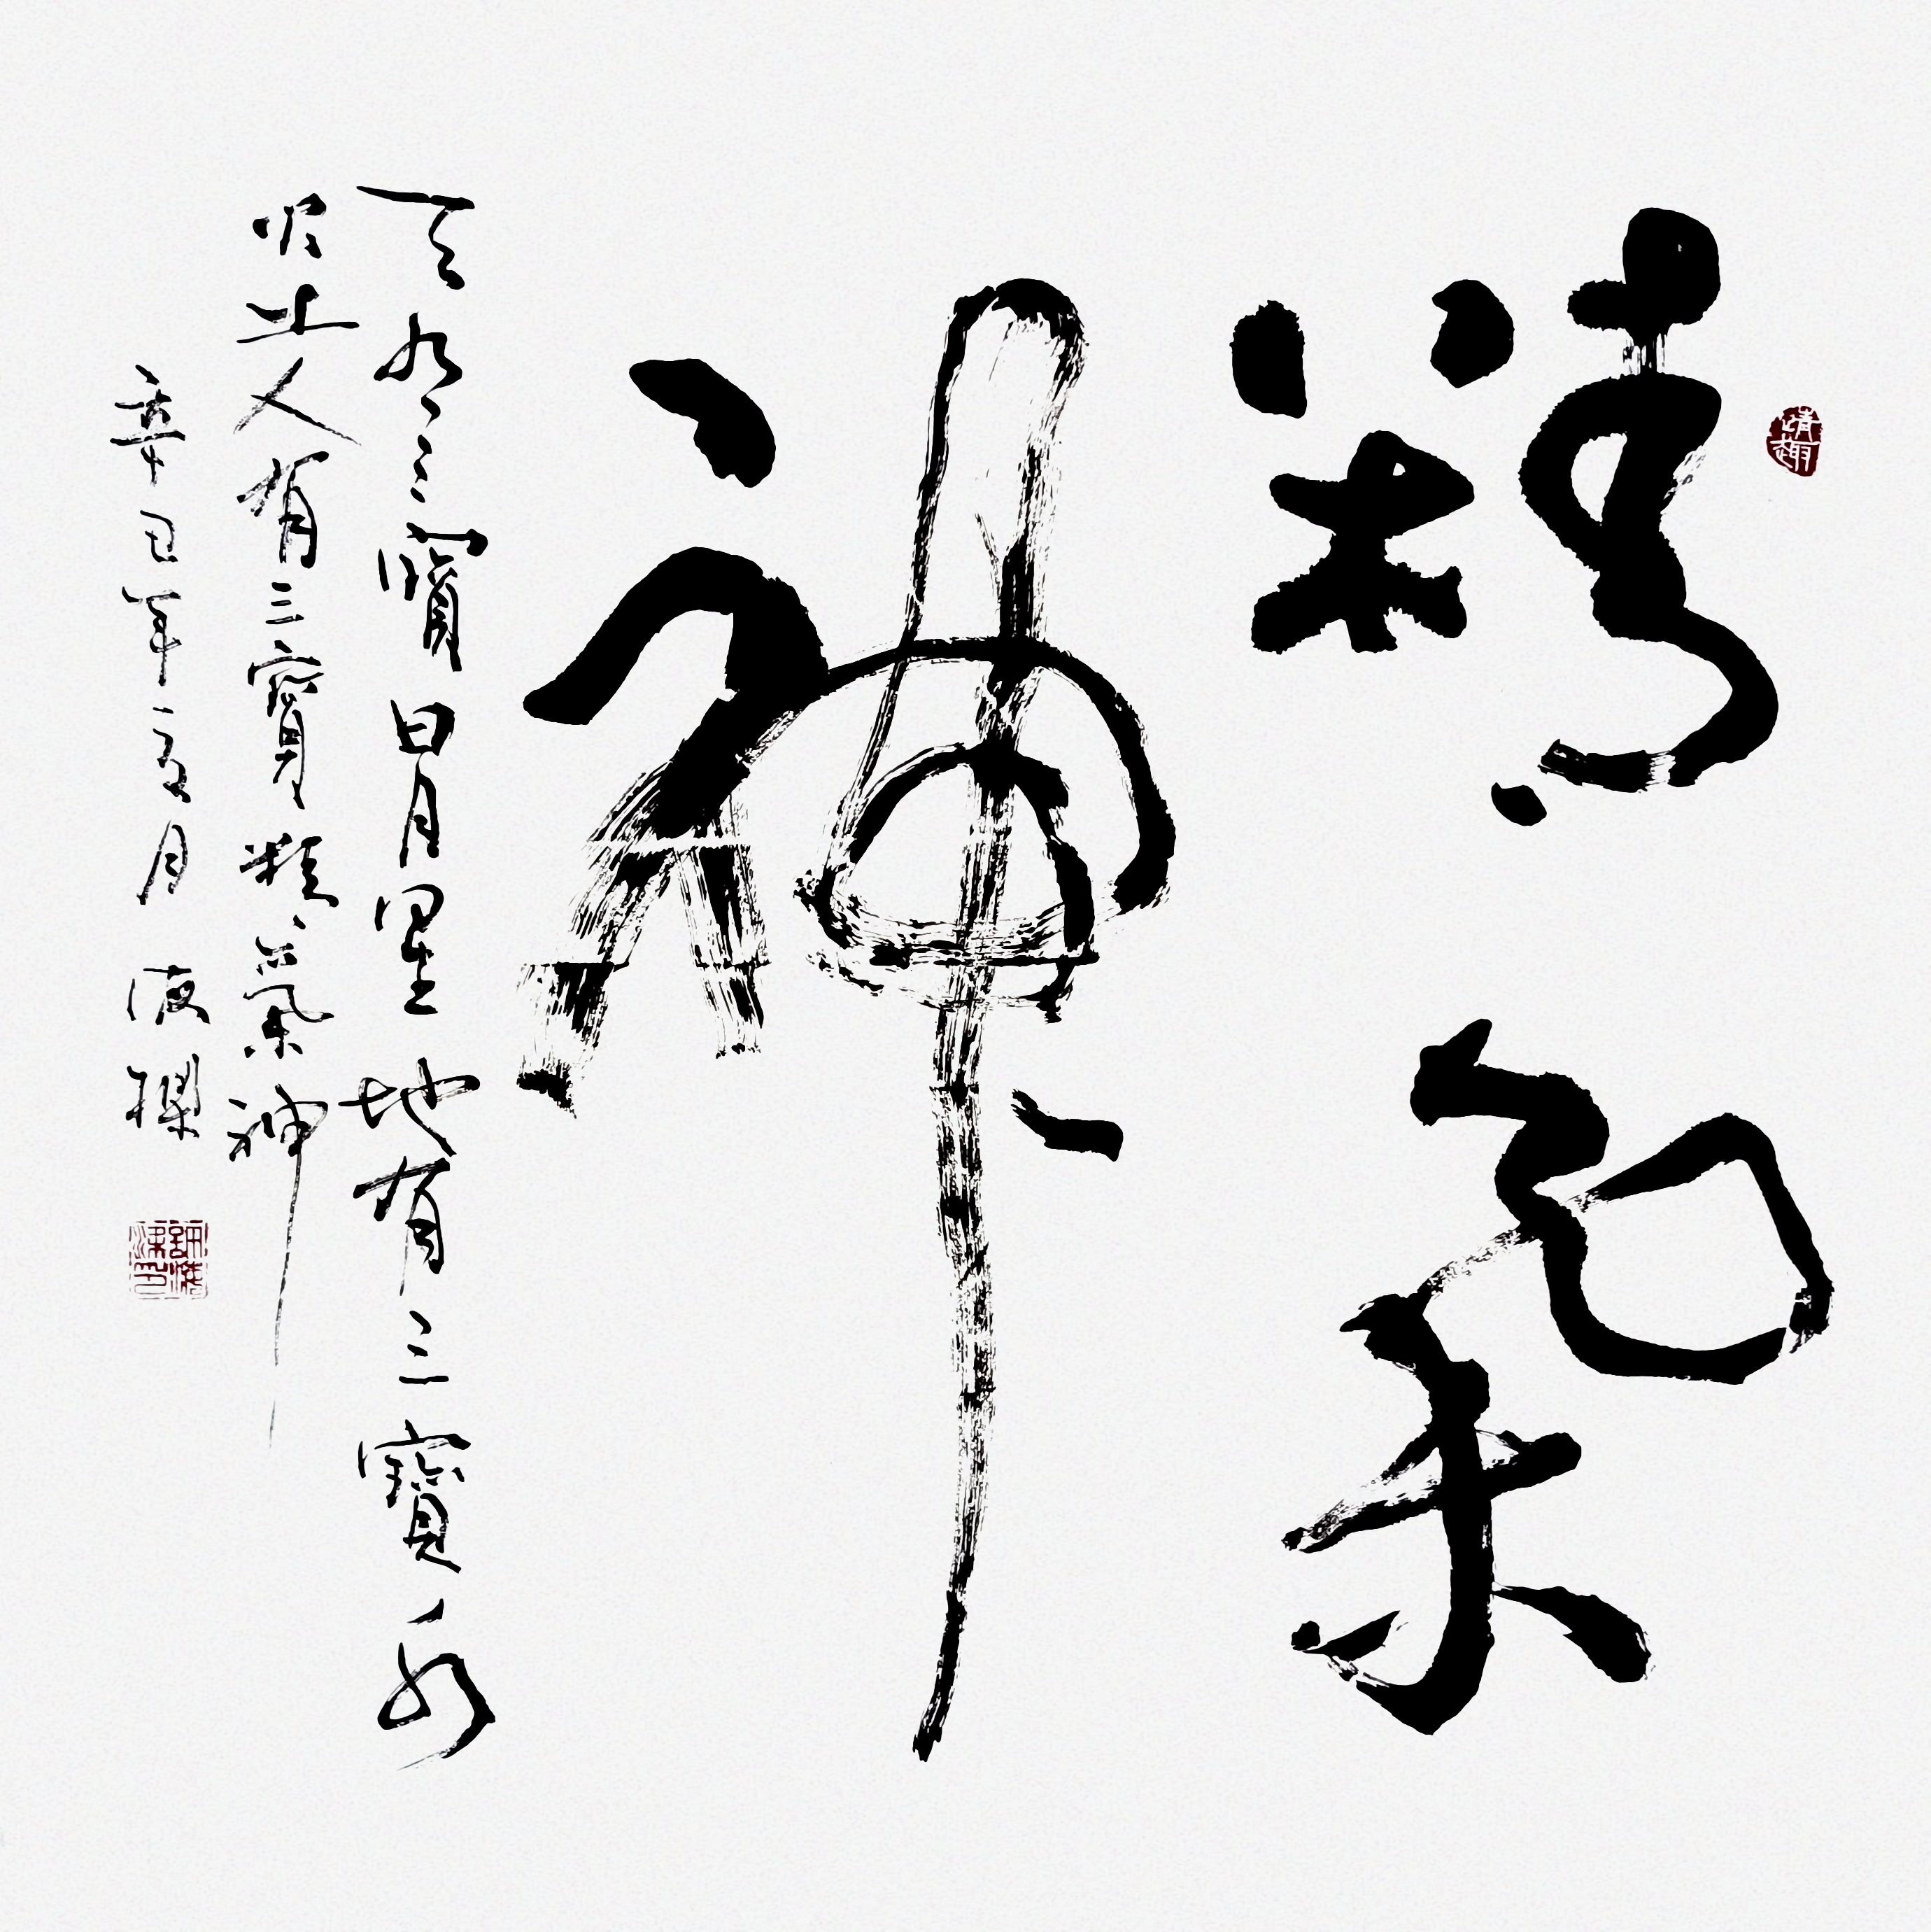 精氣
神
天有三寶日月星地有三寶水
火土人有三寶精氣神
辛巳年 月 液
靖趣